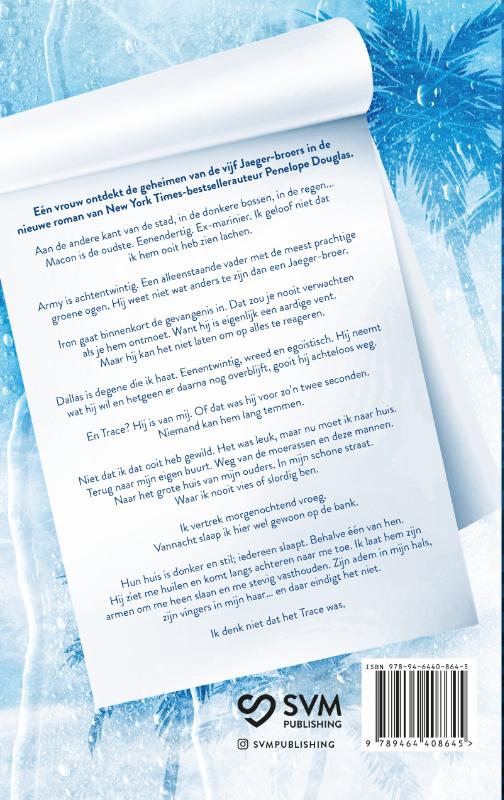 Eén vrouw ontdekt de geheimen van de vijf Jaeger-broers in de
nieuwe roman van New York Times-bestsellerauteur Penelope Douglas.
Aan de andere kant van de stad, in de donkere bossen, in de regen...
Macon is de oudste. Eenendertig. Ex-marinier. Ik geloof niet dat
ik hem ooit heb zien lachen.
Army is achtentwintig. Een alleenstaande vader met de meest prachtige
groene ogen. Hij weet niet wat anders te zijn dan een Jaeger-broer.
Iron gaat binnenkort de gevangenis in. Dat zou je nooit verwachten
als je hem ontmoet. Want hij is eigenlijk een aardige vent.
Maar hij kan het niet laten om op alles te reageren.
Dallas is degene die ik haat. Eenentwintig, wreed en egoïstisch. Hij neemt
wat hij wil en hetgeen er daarna nog overblijft, gooit hij achteloos weg.
En Trace? Hij is van mij. Of dat was hij voor zo'n twee seconden.
Niemand kan hem lang temmen.
Niet dat ik dat ooit heb gewild. Het was leuk, maar nu moet ik naar huis.
Terug naar mijn eigen buurt. Weg van de moerassen en deze mannen.
Naar het grote huis van mijn ouders. In mijn schone straat.
Waar ik nooit vies of slordig ben.
Ik vertrek morgenochtend vroeg.
Vannacht slaap ik hier wel gewoon op de bank.
Hun huis is donker en stil; iedereen slaapt. Behalve één van hen.
Hij ziet me huilen en komt langs achteren naar me toe. Ik laat hem zijn
armen om me heen slaan en me stevig vasthouden. Zijn adem in mijn hals,
zijn vingers in mijn haar... en daar eindigt het niet.
Ik denk niet dat het Trace was.
ISBN 978-94-6440-864-5
SVM
PUBLISHING
SVMPUBLISHING
9 789464 408645 >